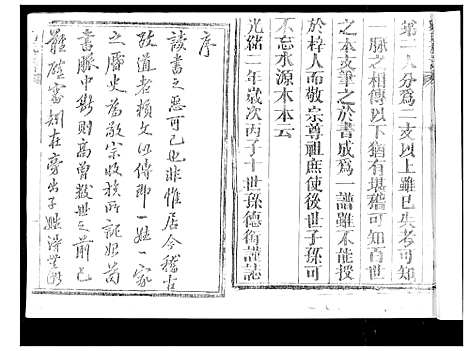 第一人分爲二支以上雖已失考可知
一脉之相傳以下猶有堪稽可知百世
之本支筆之於書成爲一譜雖不能授
於梓人而敬宗尊祖庶使後世子孫可
不忘水源木本云
光緒二年歲次丙子十世孫德衛謹誌
序
讀書之惡可已也非惟居今稽古
政道者賴文以傳即一姓一家
之歷史為敬宗收族所託始苟
書脈中斷則高曾數世之前已
難確審翅在旁出子姓